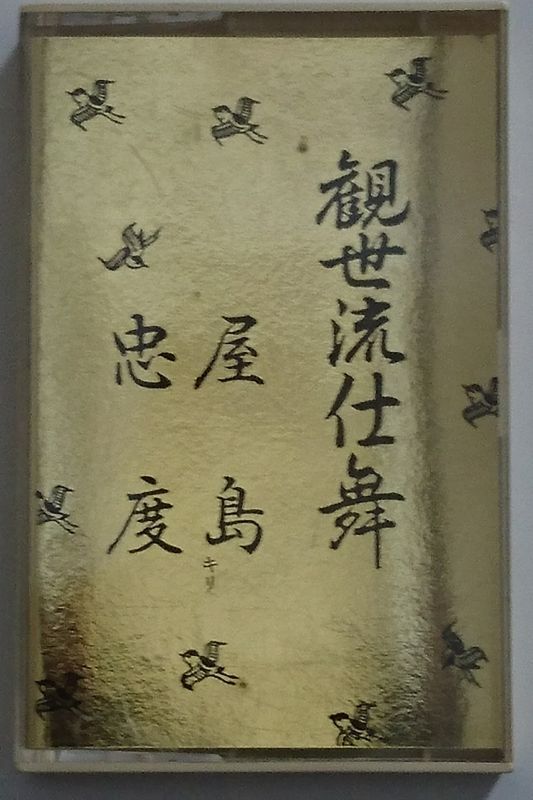 観世流仕舞
屋島
キリ
忠度